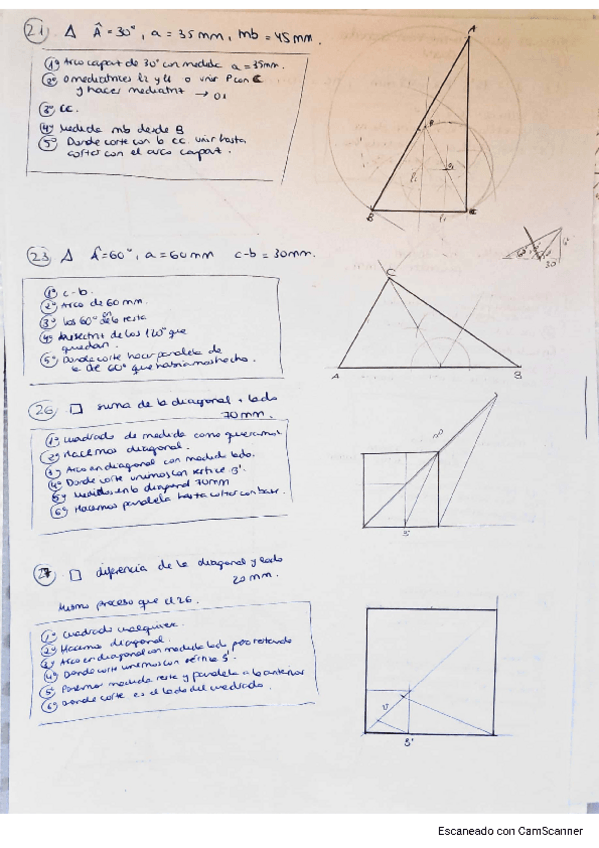 21 Δ Â=30°, a=35mm, mb=45mm.
1º Arco capaz de 30° con medida a=35mm.
2º o mediatrices l2 y l1 o unir P con C
y hacer mediatriz → O1
3º CC.
4º Medida mb desde B
5º Donde corte con b CC. unir hasta
cortar con el arco capaz.
A
P
B
C
23 Δ Â=60°, a=60mm c-b=30mm.
1º c-b.
2º Arco de 60mm.
3º los 60° en la resta
4º bisectriz de los 120° que
quedan.
5º Donde corte hacer paralela de
la de 60° que habíamos hecho.
C
A
B
30
26 □ suma de la diagonal + lado
70mm.
1º cuadrado de medida como queramos
2º Hacemos diagonal.
3º Arco en diagonal con medida lado.
4º Donde corte unimos con vértice B'.
5º Medimos en la diagonal 70mm
6º Hacemos paralela hasta cortar con base.
70
B'
27 □ diferencia de la diagonal y lado
20mm.
Mismo proceso que el 26.
1º cuadrado cualquiera.
2º Hacemos diagonal.
3º Arco en diagonal con medida lado pero restando
4º Donde corte unimos con vértice B'
5º Ponemos medida resta y paralela a la anterior
6º Donde corte es el lado del cuadrado.
B'
Escaneado con CamScanner